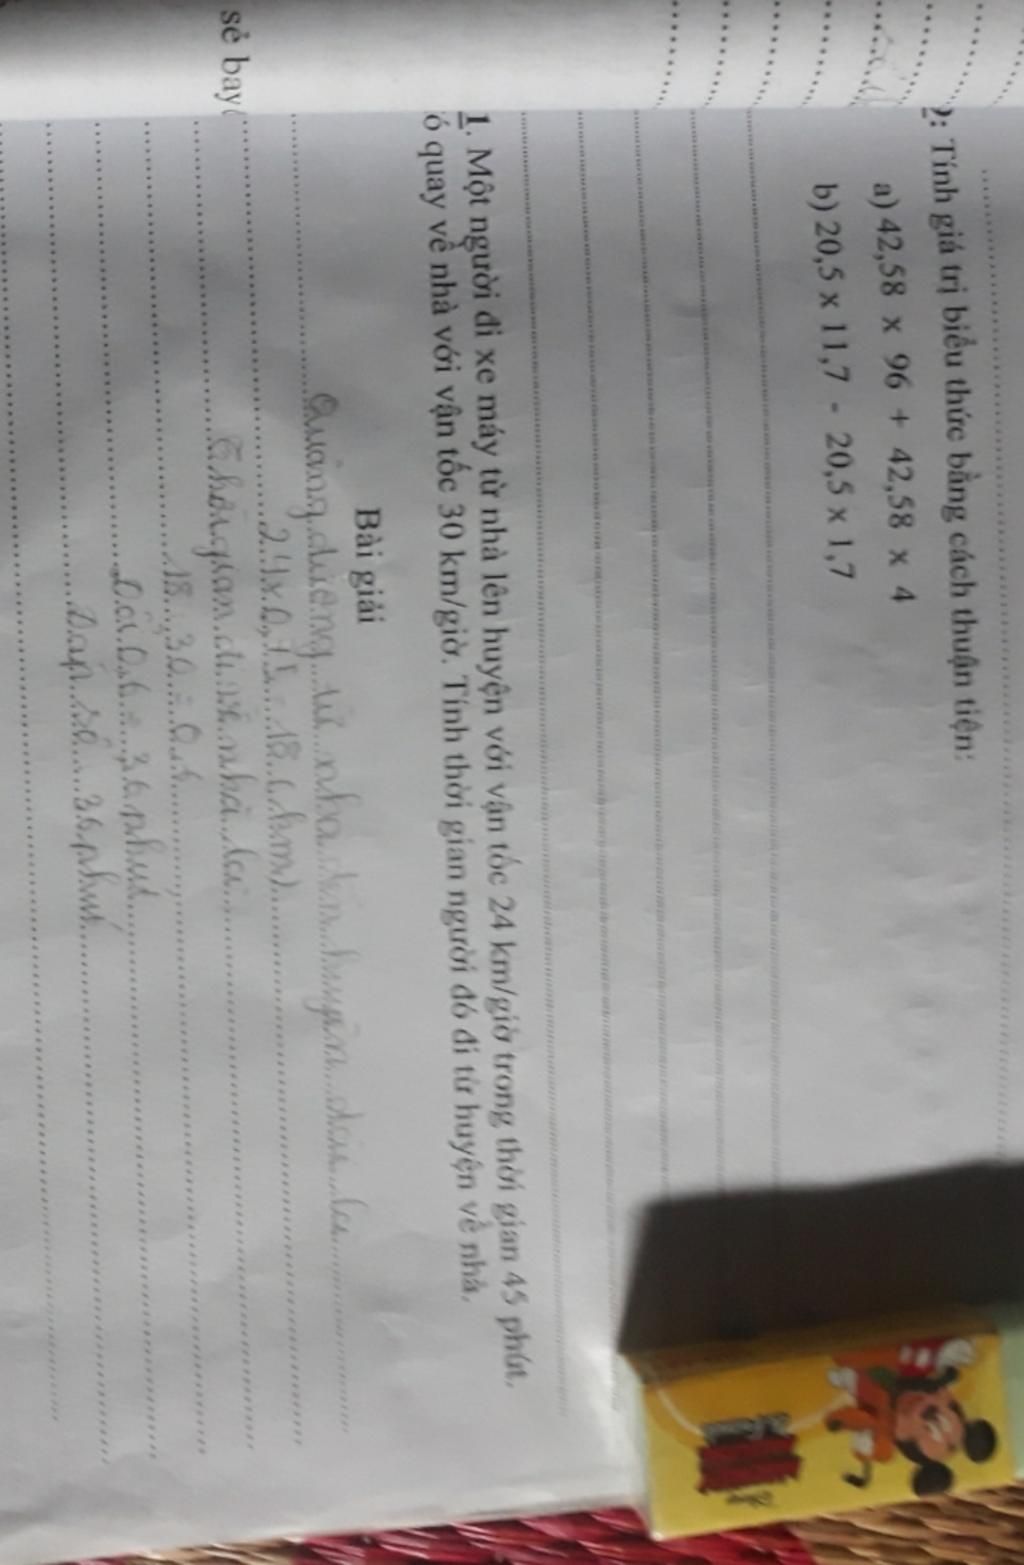 ): Tính giá trị biểu thức bằng cách thuận tiện:
a) 42,58 x 96 + 42,58 x 4
b) 20,5 x 11,7 - 20,5 x 1,7
1. Một người đi xe máy từ nhà lên huyện với vận tốc 24 km/giờ trong thời gian 45 phút.
ó quay về nhà với vận tốc 30 km/giờ. Tính thời gian người đó đi từ huyện về nhà.
Bài giải
Quãng đường từ nhà đến huyện dài là
24 x 0,75 = 18 (km)
sẻ bay
Thời gian đi về nhà là
18 : 30 = 0,6
Đổi 0,6 = 36 phút
Đáp số 36 phút
Disney